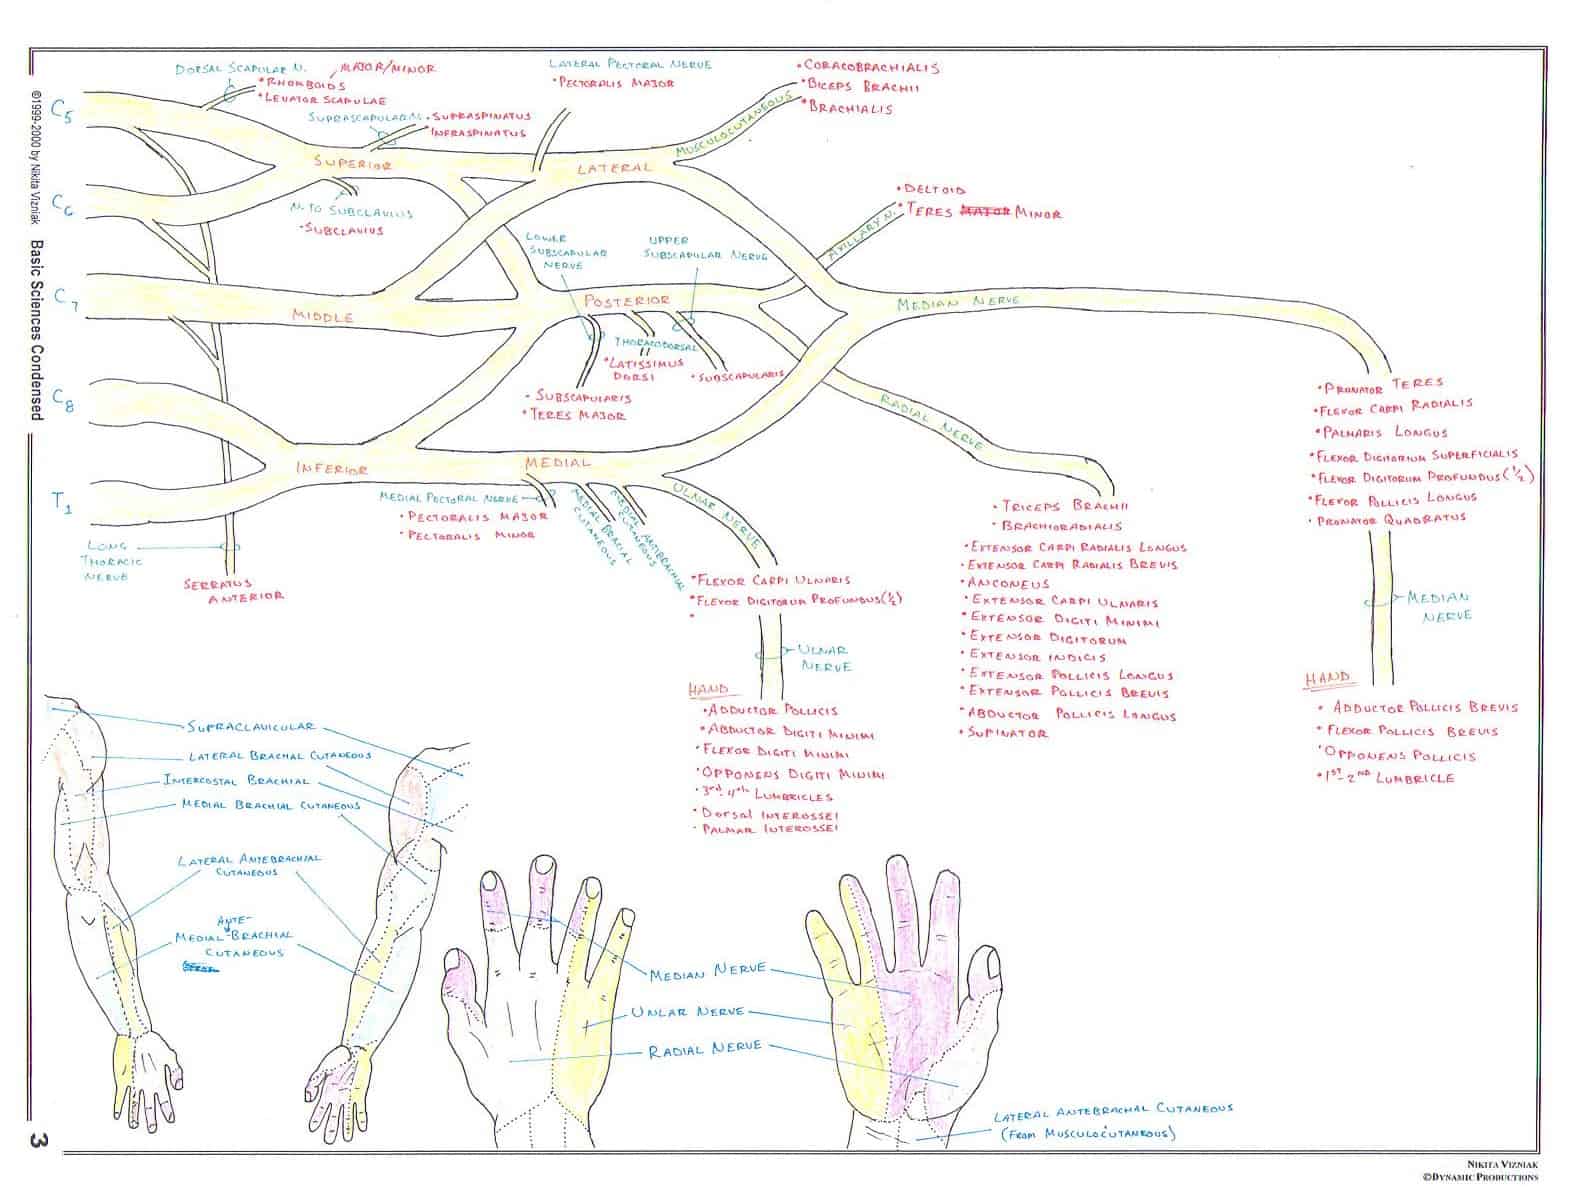 DORSAL SCAPULAR N.
MAJOR/MINOR
• RHOMBOIDS
• LEVATOR SCAPULAE
SUPRASCAPULAR N.
• SUPRASPINATUS
INFRASPINATUS
LATERAL PECTORAL NERVE
• PECTORALIS MAJOR
• CORACOBRACHIALIS
• BICEPS BRACHII
• BRACHIALIS
MUSCULOCUTANEOUS
C5
SUPERIOR
LATERAL
C6
N. TO SUBCLAVIUS
• SUBCLAVIUS
• DELTOID
• TERES MAJOR MINOR
AXILLARY N.
LOWER
SUBSCAPULAR
NERVE
UPPER
SUBSCAPULAR NERVE
C7
MIDDLE
POSTERIOR
MEDIAN NERVE
THORACODORSAL
• LATISSIMUS
DORSI
• SUBSCAPULARIS
• SUBSCAPULARIS
• TERES MAJOR
C8
RADIAL NERVE
INFERIOR
MEDIAL
T1
MEDIAL PECTORAL NERVE
• PECTORALIS MAJOR
• PECTORALIS MINOR
MEDIAL BRACIAL
CUTANEOUS
MEDIAL ANTIBRACHIAL
CUTANEOUS
ULNAR NERVE
LONG
THORACIC
NERVE
SERRATUS
ANTERIOR
• FLEXOR CARPI ULNARIS
• FLEXOR DIGITORUM PROFUNDUS (½)
•
ULNAR
NERVE
HAND
• ADDUCTOR POLLICIS
• ABDUCTOR DIGITI MINIMI
• FLEXOR DIGITI MINIMI
• OPPONENS DIGITI MINIMI
• 3rd-4th LUMBRICLES
• DORSAL INTEROSSEI
• PALMAR INTEROSSEI
• TRICEPS BRACHII
• BRACHIORADIALIS
• EXTENSOR CARPI RADIALIS LONGUS
• EXTENSOR CARPI RADIALIS BREVIS
• ANCONEUS
• EXTENSOR CARPI ULNARIS
• EXTENSOR DIGITI MINIMI
• EXTENSOR DIGITORUM
• EXTENSOR INDICIS
• EXTENSOR POLLICIS LONGUS
• EXTENSOR POLLICIS BREVIS
• ABDUCTOR POLLICIS LONGUS
• SUPINATOR
• PRONATOR TERES
• FLEXOR CARPI RADIALIS
• PALMARIS LONGUS
• FLEXOR DIGITORIUM SUPERFICIALIS
• FLEXOR DIGITORUM PROFUNDUS (½)
• FLEXOR POLLICIS LONGUS
• PRONATOR QUADRATUS
MEDIAN
NERVE
HAND
• ADDUCTOR POLLICIS BREVIS
• FLEXOR POLLICIS BREVIS
• OPPONENS POLLICIS
• 1ST-2ND LUMBRICLE
SUPRACLAVICULAR
LATERAL BRACHAL CUTANEOUS
INTERCOSTAL BRACHIAL
MEDIAL BRACHIAL CUTANEOUS
LATERAL ANTEBRACHIAL
CUTANEOUS
ANTE-
MEDIAL BRACHIAL
CUTANEOUS
MEDIAN NERVE
UNLAR NERVE
RADIAL NERVE
LATERAL ANTEBRACHAL CUTANEOUS
(FROM MUSCULOCUTANEOUS)
©1999-2000 by Nikita Vizniak Basic Sciences Condensed
3
NIKITA VIZNIAK
©DYNAMIC PRODUCTIONS